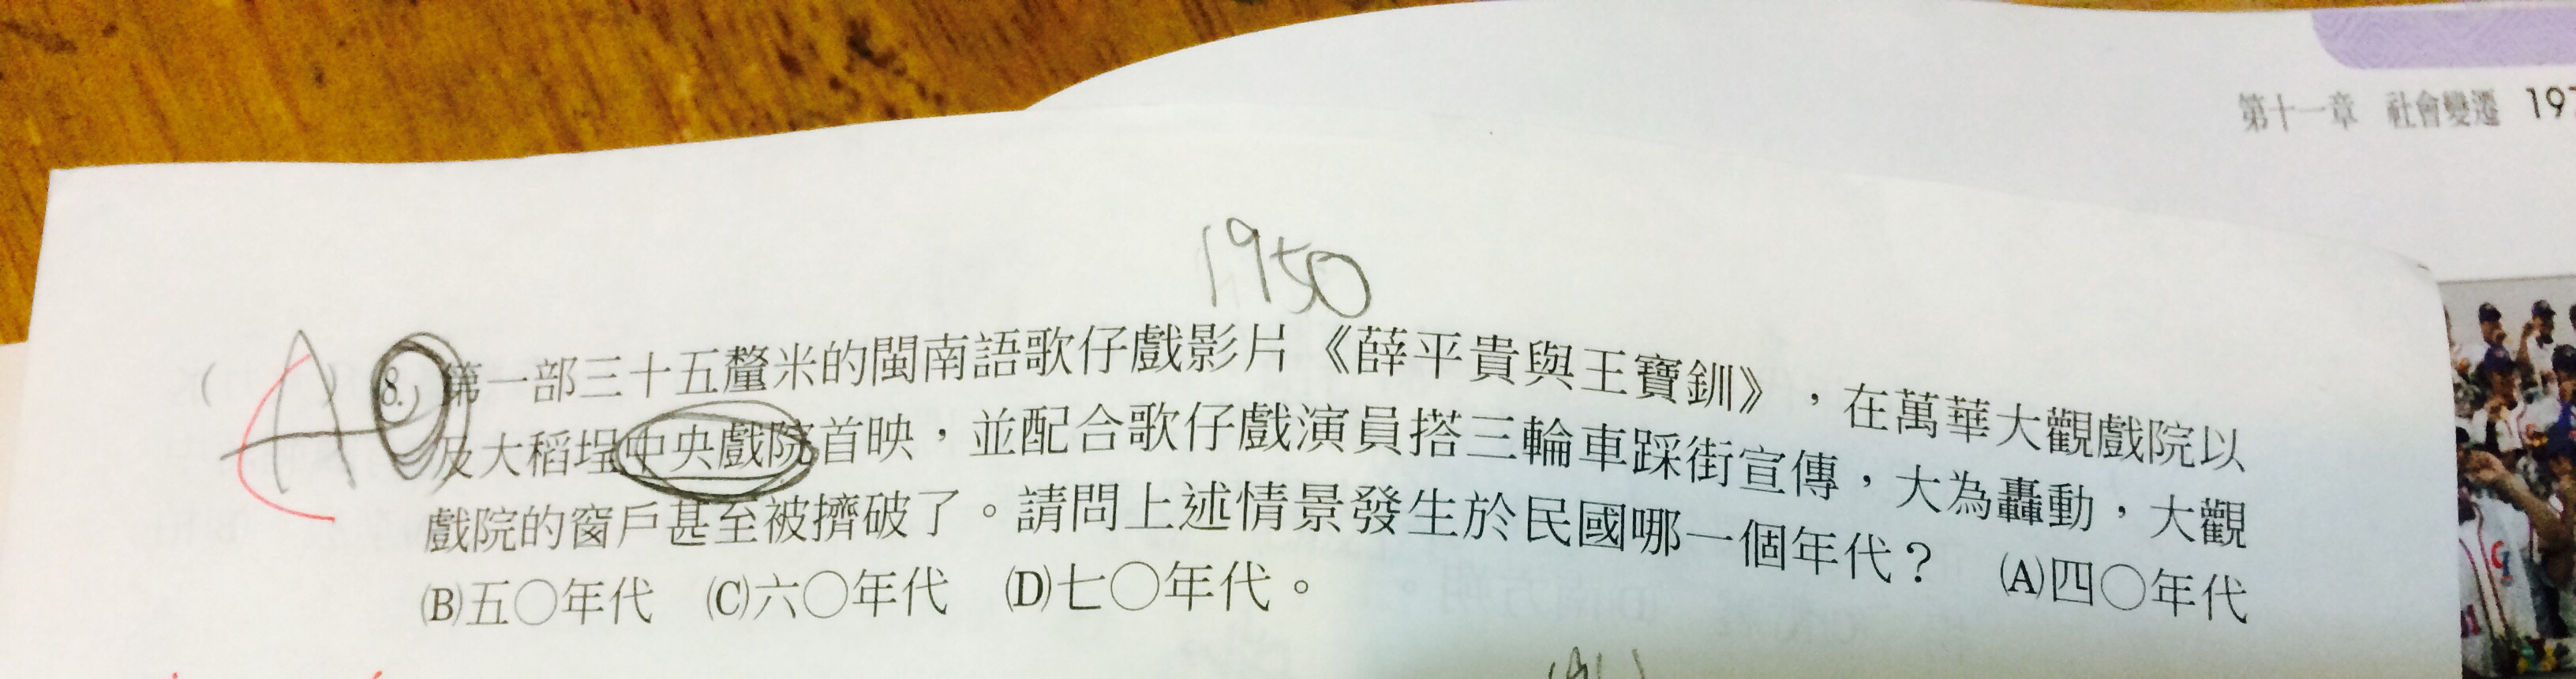 第十一章 社會變遷 197
1950
( A ) 8. 第一部三十五釐米的閩南語歌仔戲影片《薛平貴與王寶釧》，在萬華大觀戲院以
及大稻埕中央戲院首映，並配合歌仔戲演員搭三輪車踩街宣傳，大為轟動，大觀
戲院的窗戶甚至被擠破了。請問上述情景發生於民國哪一個年代？ (A)四〇年代
(B)五〇年代 (C)六〇年代 (D)七〇年代。